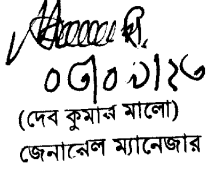 ০৩|০৯|২৩
(দেব কুমার মালো)
জেনারেল ম্যানেজার